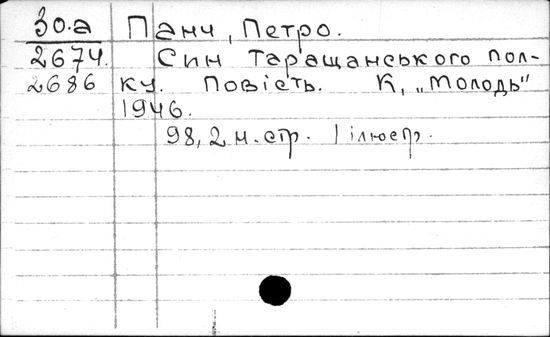 30.а Панч, Петро.
2674. Син Таращанського пол-
2686 ку. Повість. К, „Молодь"
1946.
98, 2 н.стр. 1 ілюстр.